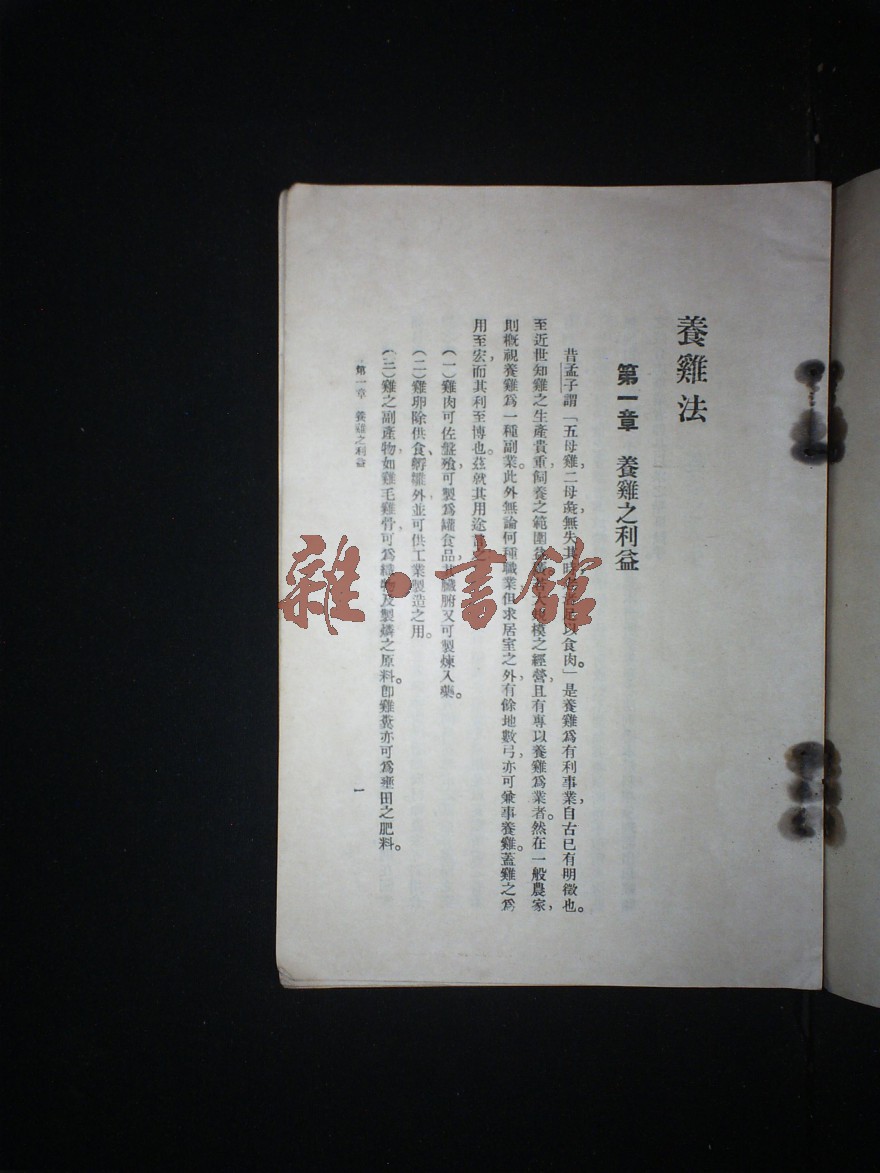 養雞法
第一章　養雞之利益
昔孟子謂「五母雞，二母彘，無失其時，以食肉。」是養雞爲有利事業，自古已有明徵也。
至近世知雞之生產貴重，飼養之範圍益大規模之經營，且有專以養雞爲業者。然在一般農家，
則概視養雞爲一種副業。此外無論何種職業，但求居室之外，有餘地數弓，亦可兼事養雞。蓋雞之爲
用至宏，而其利至博也。茲就其用途言之。
（一）雞肉可佐盤飧，可製爲罐食品，其臟腑又可製煉入藥。
（二）雞卵除供食、孵雛外，並可供工業製造之用。
（三）雞之副產物，如雞毛雞骨，可爲織物及製燐之原料。卽雞糞亦可爲壅田之肥料。
第一章　養雞之利益
一
雜·書館